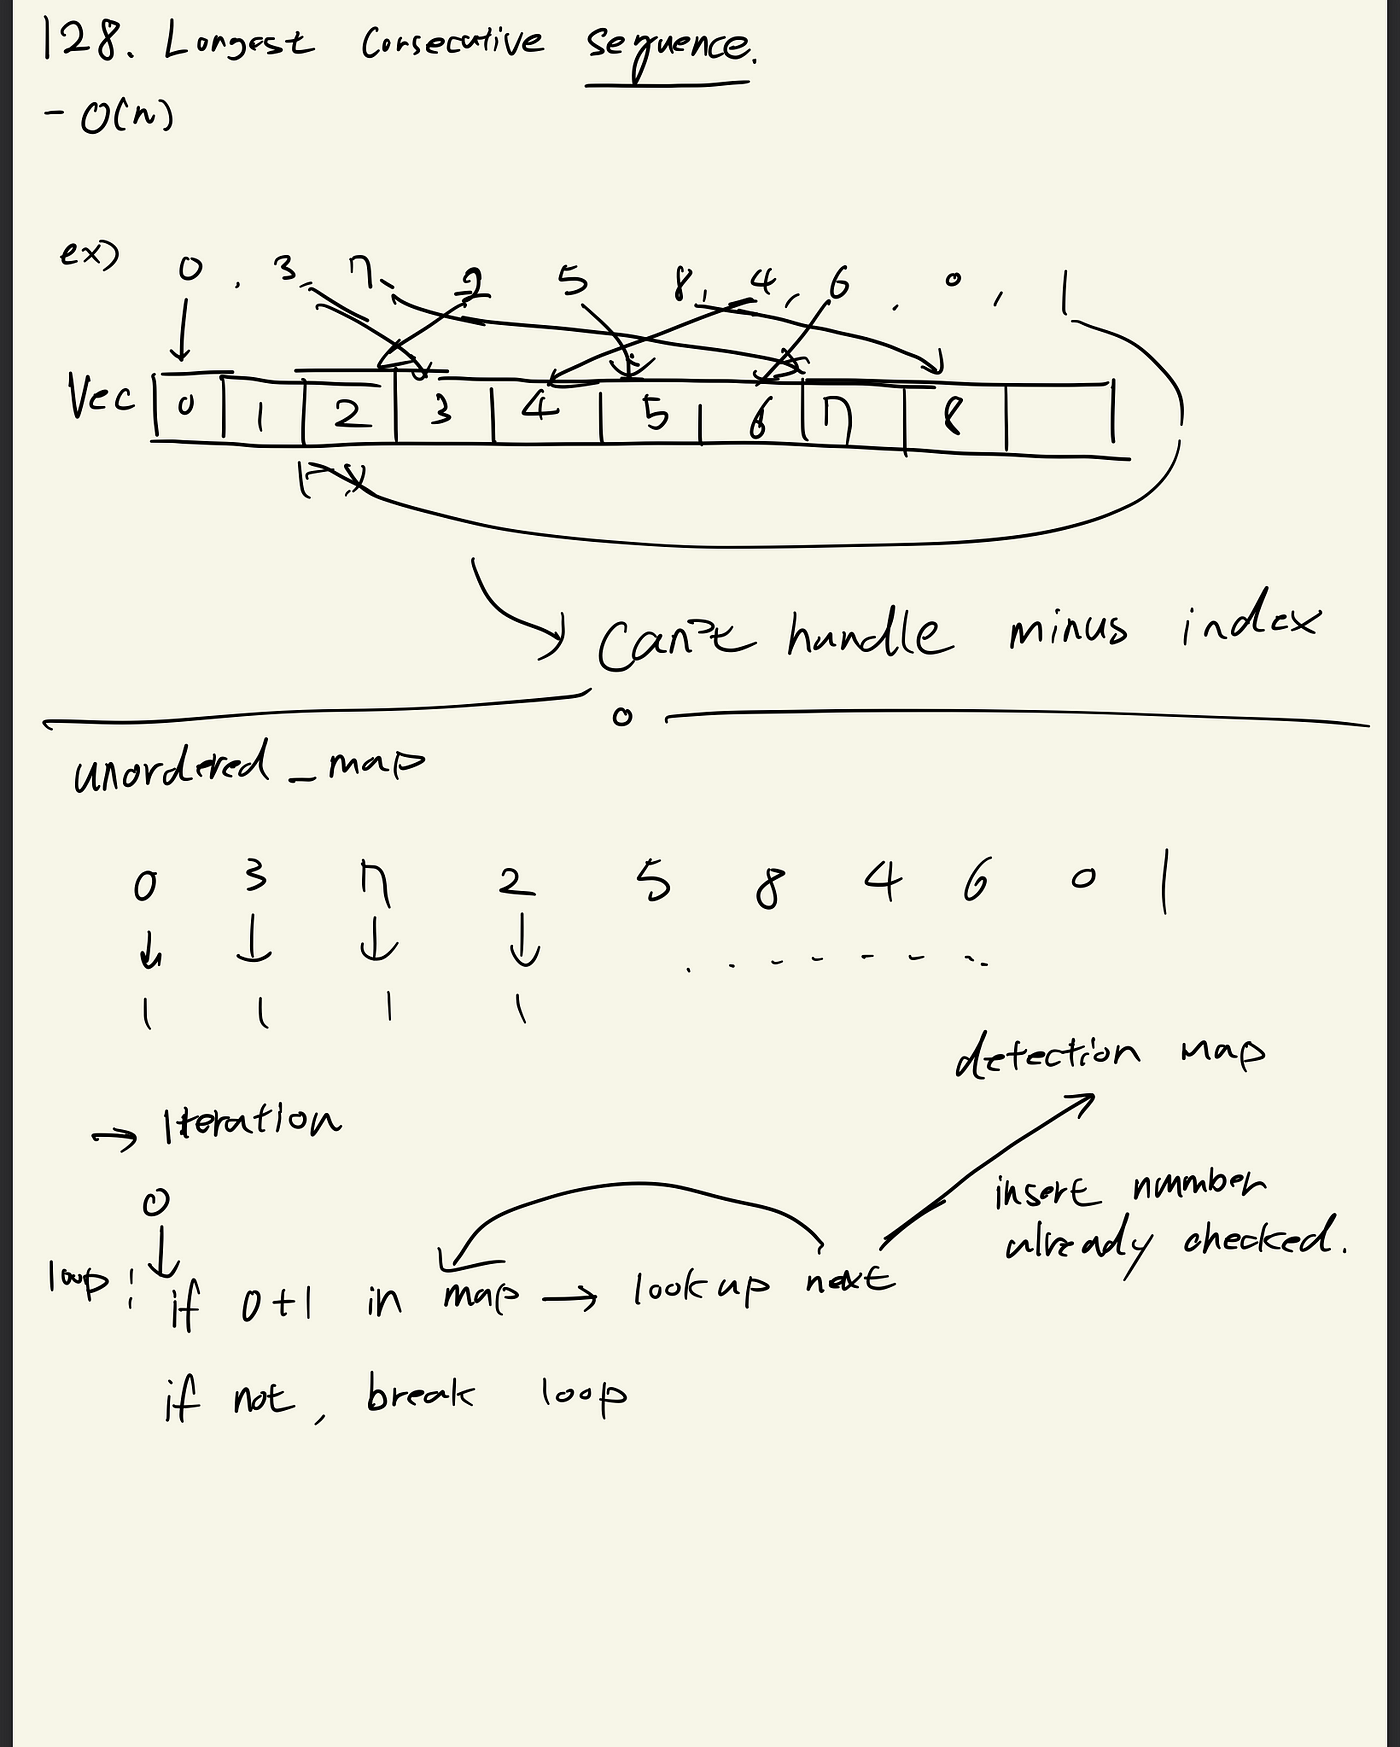 128. Longest Consecutive Sequence.
- O(n)
ex) 0 , 3, 7, 2 5 8, 4, 6 , 0 , 1
Vec 0 1 2 3 4 5 6 7 8
Can't handle minus index
unordered_map
0 3 7 2 5 8 4 6 0 1
1 1 1 1
detection map
→ Iteration
0
insert nummber
already checked.
loop : if 0+1 in map → look up next
if not, break loop